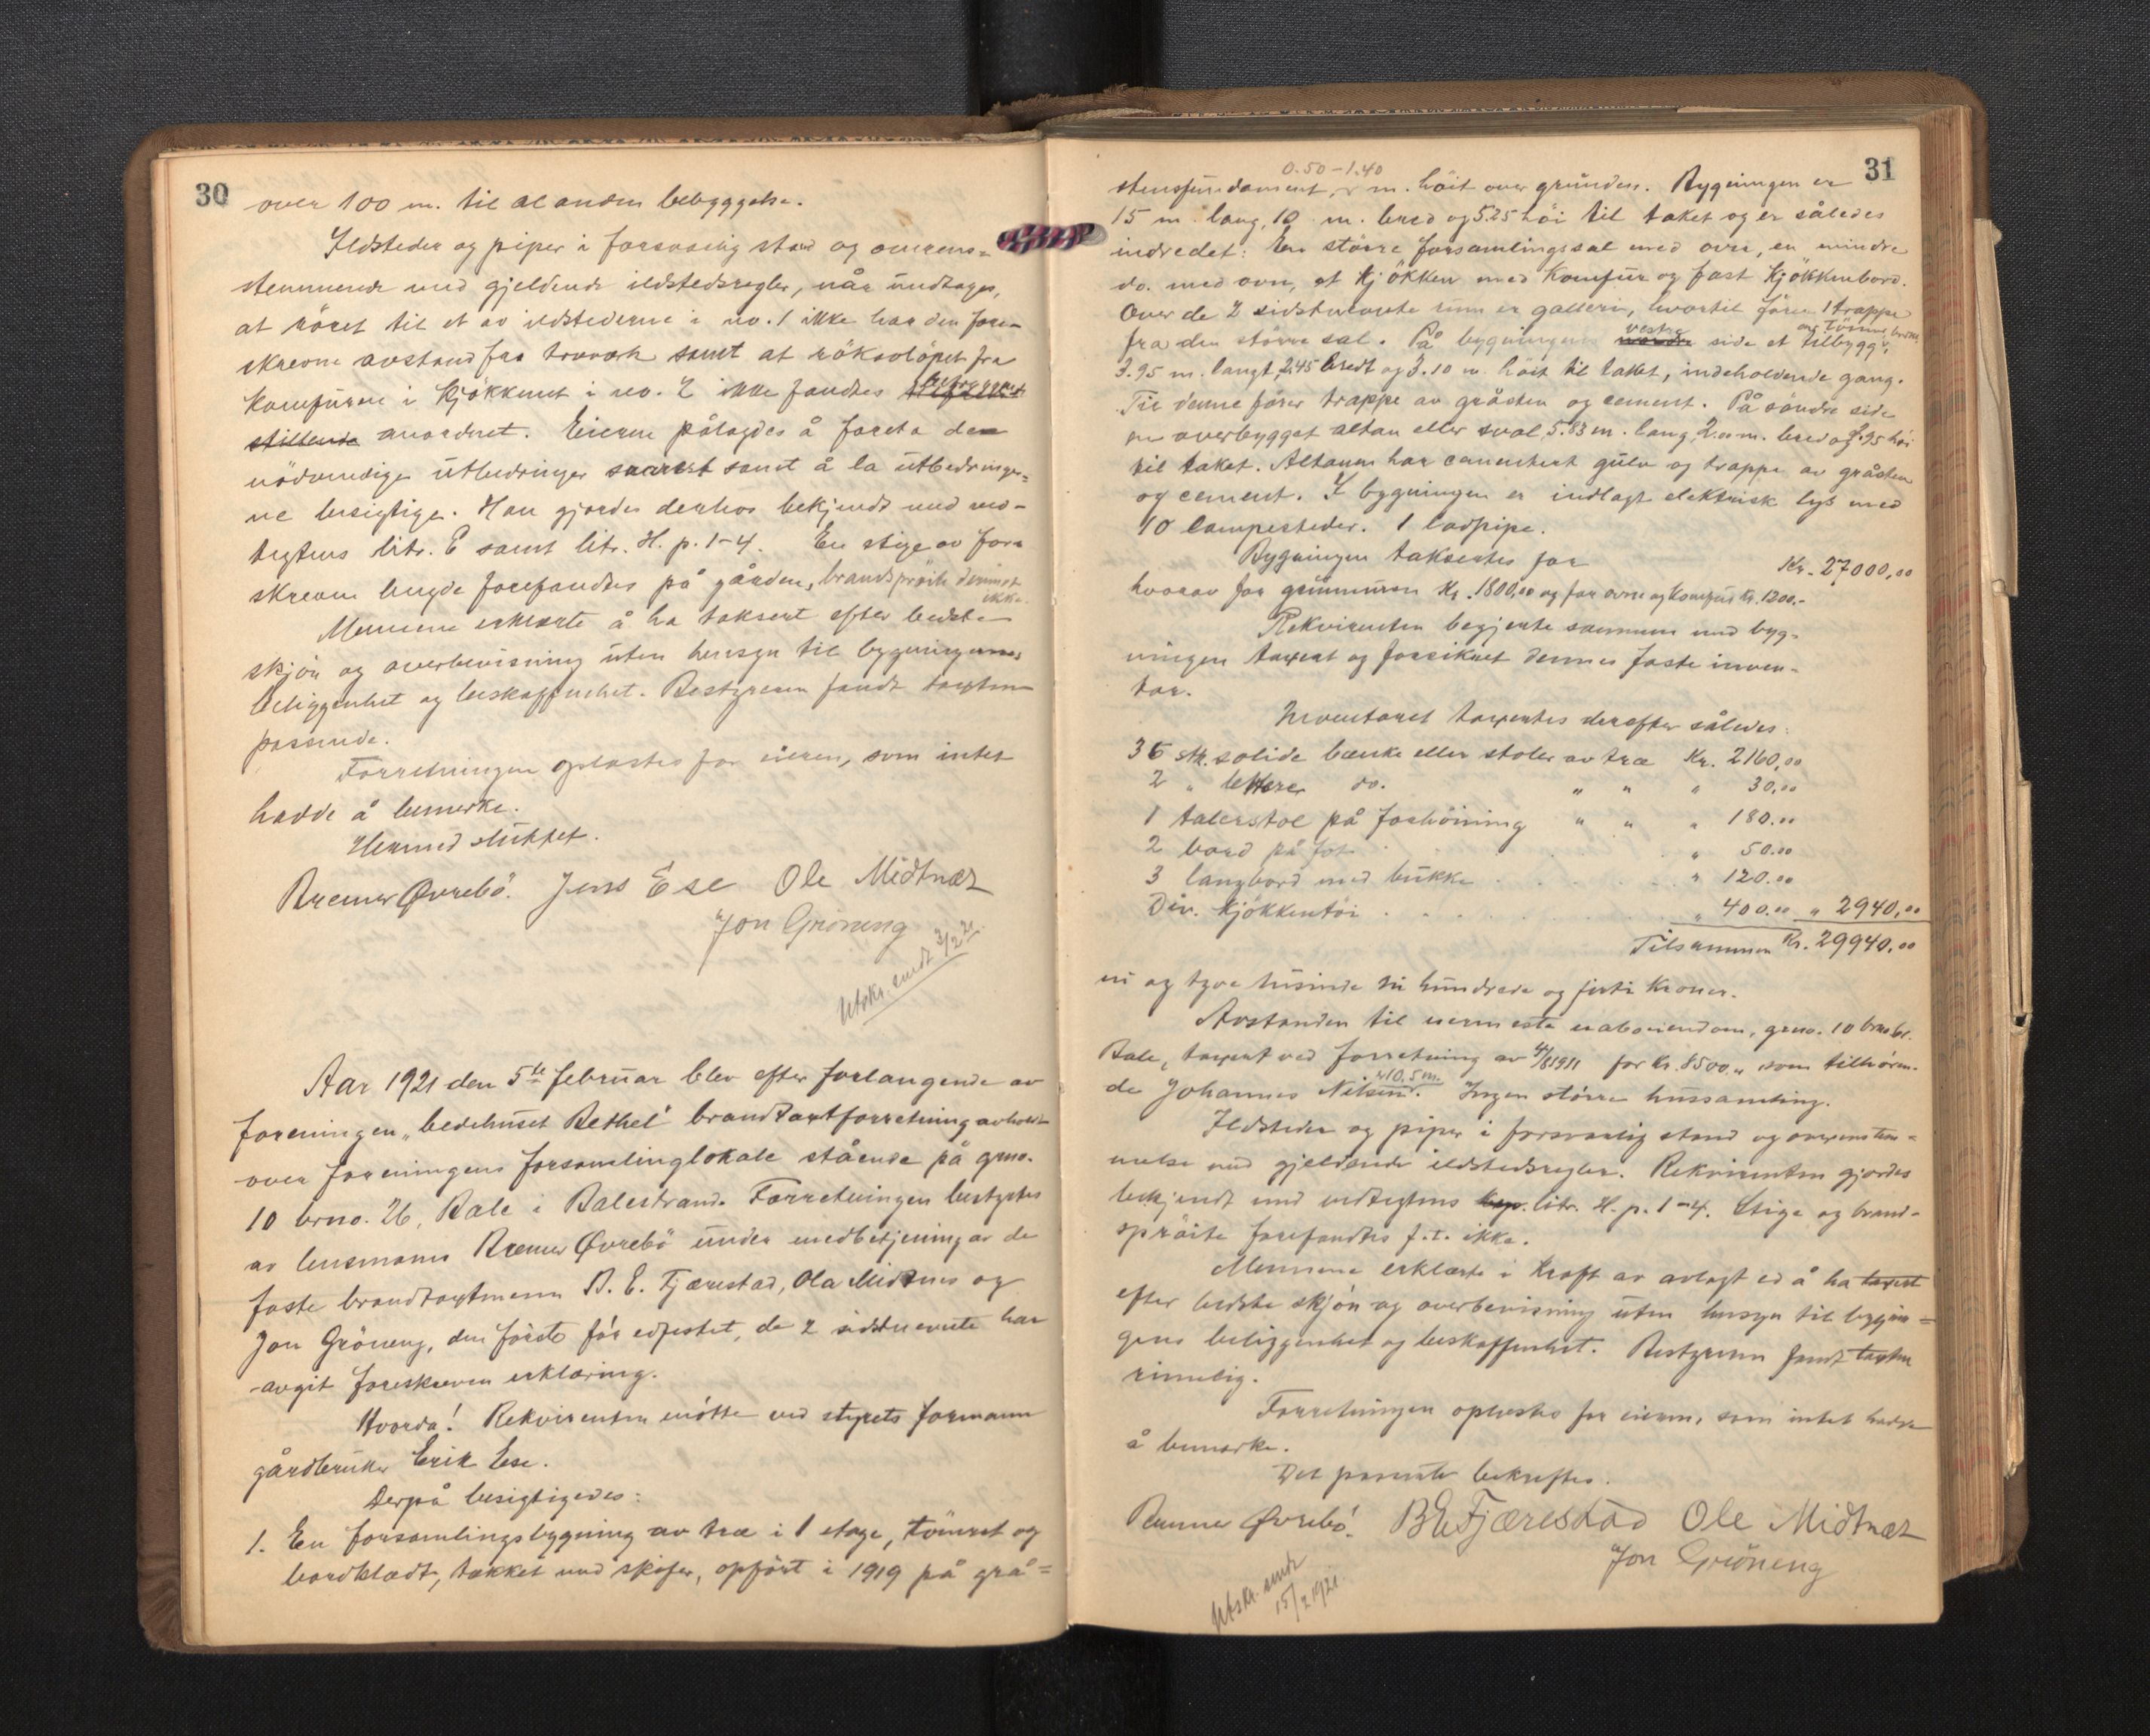 30
over 100 m. til al anden bebyggelse.
Ildsteder og piper i forsvarlig stand og overens-
stemmende med gjeldende ildstedsregler, når undtages,
at röret til et av ildstederne i no. 1 ikke har den fore-
skrevne avstand fra trævork samt at rökavlöpet fra
komfüren i kjökkenet i no. 2 ikke fandtes betryggende
stillende anordnet. Eieren pålagdes å foreta de
nödvendige utbedringer snarest samt å la utbedringer-
ne besigtige. Han gjordes derhos bekjendt med ved-
tegtens litr. E samt litr. H. p. 1-4. En stige av fore-
skreven lengde forefandtes på gården, brandspröite derimot
ikke.
Mennene erklærte å ha taksert efter bedste
skjön og overbevisning uten hensyn til bygningenes
beliggenhet og beskaffenhet. Bestyreren fandt taxten
passende.
Forretningen oplæstes for eieren, som intet
hadde å bemerke.
Hermed sluttet.
Bremer Øvrebö. Jens Ese Ole Midtnæs
Jon Gröneng
Utskr. sendt 3/2 21.
Aar 1921 den 5te februar blev efter forlangende av
foreningen "bedehuset Bethel" brandtaxtforretning avholdt
over foreningens forsamlinglokale stående på gno.
10 brno. 26, Bale i Balestrand. Forretningen bestyrtes
av lensmann Bremer Øvrebö under medbetjening av de
faste brandtaxtmenn B. E. Fjærestad, Ola Midtnes og
Jon Gröneng, den förste för edfestet, de 2 sidstnevnte har
avgit foreskreven erklæring.
Hvorda! Rekvirenten mötte ved styrets formann
gårdbruker Erik Ese.
Derpå besigtigedes:
1. En forsamlingsbygning av træ i 1 etage, tömret og
bordklædt, tækket med skifer, opfört i 1919 på grå=
31
0.50-1.40
stensfundament, m. höit over grunden. Bygningen er
15 m. lang, 10 m. bred og 5.25 höi til taket og er således
indredet: En större forsamlingssal med ovn, en mindre
do. med ovn, et kjökken med komfur og fast kjökkenbord.
Over de 2 sidstnevnte rum er galleri, hvortil förer 1 trappe
fra den större sal. På bygningens vestre nordre side et tilbygg,
av tömmer
3.95 m. langt, 2.45 bredt og 3.10 m. höit til taket, indeholdende gang.
Til denne förer trappe av gråsten og cement. På söndre side
en overbygget altan eller sval, 5.83 m. lang, 2.00 m. bred og 2.95 höi
til taket. Altanen har cementert gulv og trappe av gråsten
og cement. I bygningen er indlagt elektrisk lys med
10 lampesteder. 1 lodpipe.
Bygningen taksertes for Kr. 27000,00
hvorav for grunmuren Kr. 1800,00 og for ovne og komfur Kr. 1200.-
Rekvirenten begjerte sammen med byg-
ningen taxert og forsikret dennes faste inven-
tar.
Inventaret taxertes derefter således:
36 stk. solide bænke eller stoler av træ Kr. 2160,00
2 " lettere do. " " " 30,00
1 talerstol på forhöining " " " 180.00
2 bord på fot " 50.00
3 langbord med bukke " 120.00
Div. kjökkentöi " 400.00 " 2940,00
Tilsammen Kr. 29940.00
ni og tyve tusinde ni hundrede og firti Kroner.
Avstanden til nermeste naboeiendom, gno. 10 brno
Bale, taxert ved forretning av 4/8 1911 for Kr. 8500.00 som tilhören-
de Johannes Nilsen. 10,5 m. Ingen större hussamling.
Ildsteder og piper i forsvarlig stand og overenstem-
melse med gjeldende ildstedsregler. Rekvirenten gjordes
bekjendt med vedtegtens kap. litr. H. p. 1-4. Stige og brand-
spröite forefandtes f. t. ikke.
Mennene erklærte i kraft av avlagt ed å ha taxert
efter bedste skjön og overbevisning uten hensyn til bygnin=
gens beliggenhet og beskaffenhet. Bestyreren fandt taxten
rimelig.
Forretningen oplæstes for eieren, som intet hadde
å bemerke.
Det passerte bekreftes.
Bremer Øvrebö. B E Fjærestad Ole Midtnæs
Jon Gröneng
Utskr. sendt
15/2 1921.